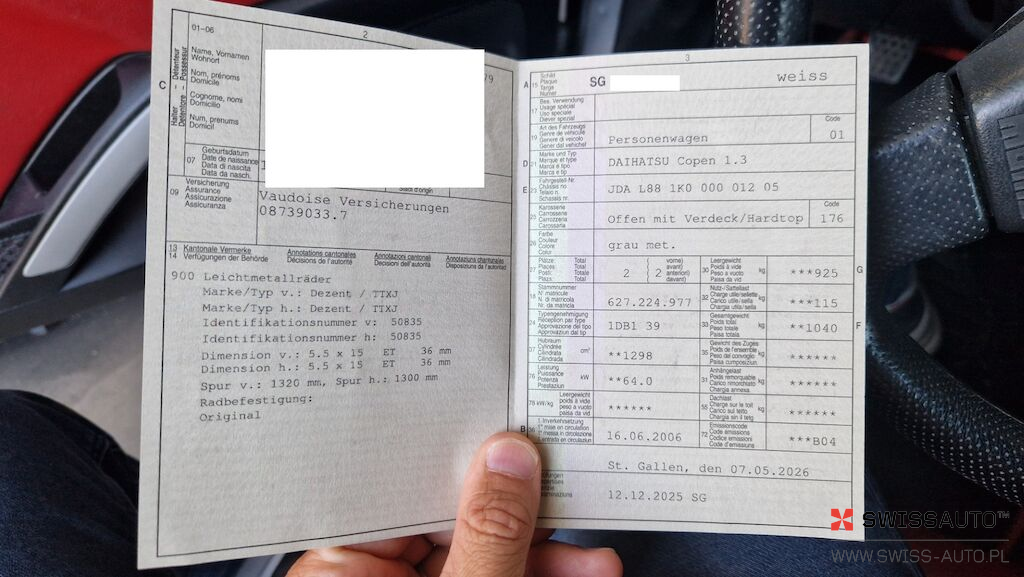 2
01-06
C
Halter – Détenteur
Detentore – Possessur
Name, Vornamen
Wohnort
Nom, prénoms
Domicile
Cognome, nomi
Domicilio
Num, prenums
Domicil
79
07
Geburtsdatum
Date de naissance
Data di nascita
Data da nasch.
09
Versicherung
Assurance
Assicurazione
Assicuranza
Vaudoise Versicherungen
08739033.7
13 Kantonale Vermerke
14 Verfügungen der Behörde
Annotations cantonales
Décisions de l'autorité
Annotazioni cantonali
Decisioni dell'autorità
Annotaziuns chantunalas
Disposiziuns da l'autoritad
900 Leichtmetallräder
Marke/Typ v.: Dezent / TTXJ
Marke/Typ h.: Dezent / TTXJ
Identifikationsnummer v: 50835
Identifikationsnummer h: 50835
Dimension v.: 5.5 x 15 ET 36 mm
Dimension h.: 5.5 x 15 ET 36 mm
Spur v.: 1320 mm, Spur h.: 1300 mm
Radbefestigung:
Original
3
A 15
Schild
Plaque
Targa
Numer
SG
weiss
17
Bes. Verwendung
Usage spécial
Uso speciale
Diever spezial
19
Art des Fahrzeugs
Genre de véhicule
Genere di veicolo
Gener dal vehichel
Personenwagen
Code
01
D 21
Marke und Typ
Marque et type
Marca e tipo
Marca e tip
DAIHATSU Copen 1.3
E 23
Fahrgestell-Nr.
Châssis no
Telaio n.
Schassis nr.
JDA L88 1K0 000 012 05
25
Karosserie
Carrosserie
Carrozzeria
Carossaria
Offen mit Verdeck/Hardtop
Code
176
26
Farbe
Couleur
Colore
Colur
grau met.
27
Plätze: Total
Places: Total
Posti: Totale
Plazs: Total
2
( vorne)
avant)
anteriori)
davant)
( 2
30
Leergewicht
Poids à vide
Peso a vuoto
Paisa da vid
kg
***925
G
18
Stammnummer
N° matricule
N. di matricola
Nr. da matricla
627.224.977
32
Nutz-/Sattellast
Charge utile/sellette
Carico utile/sella
Chargia utila/sella
kg
***115
24
Typengenehmigung
Réception par type
Approvazione del tipo
Approvaziun dal tip
1DB1 39
33
Gesamtgewicht
Poids total
Peso totale
Paisa totala
kg
**1040
F
37
Hubraum
Cylindrée
Cilindrata
Cilindrada
cm³
**1298
35
Gewicht des Zuges
Poids de l'ensemble
Peso del convoglio
Paisa cumposiziun
kg
******
76
Leistung
Puissance
Potenza
Prestaziun
kW
**64.0
31
Anhängelast
Poids remorquable
Carico rimorchiato
Chargia annexa
kg
******
78 kW/kg
Leergewicht
poids à vide
peso a vuoto
paisa da vid
******
55
Dachlast
Charge sur le toit
Carico sul tetto
Chargia sin il tetg
kg
******
B 36
1. Inverkehrsetzung
1re mise en circulation
1a messa in circolazione
16.06.2006
72
Emissionscode
Code émissions
Codice emissioni
Code d'emissiuns
***B04
St. Gallen, den 07.05.2026
12.12.2025 SG
SWISSAUTO™
WWW.SWISS-AUTO.PL